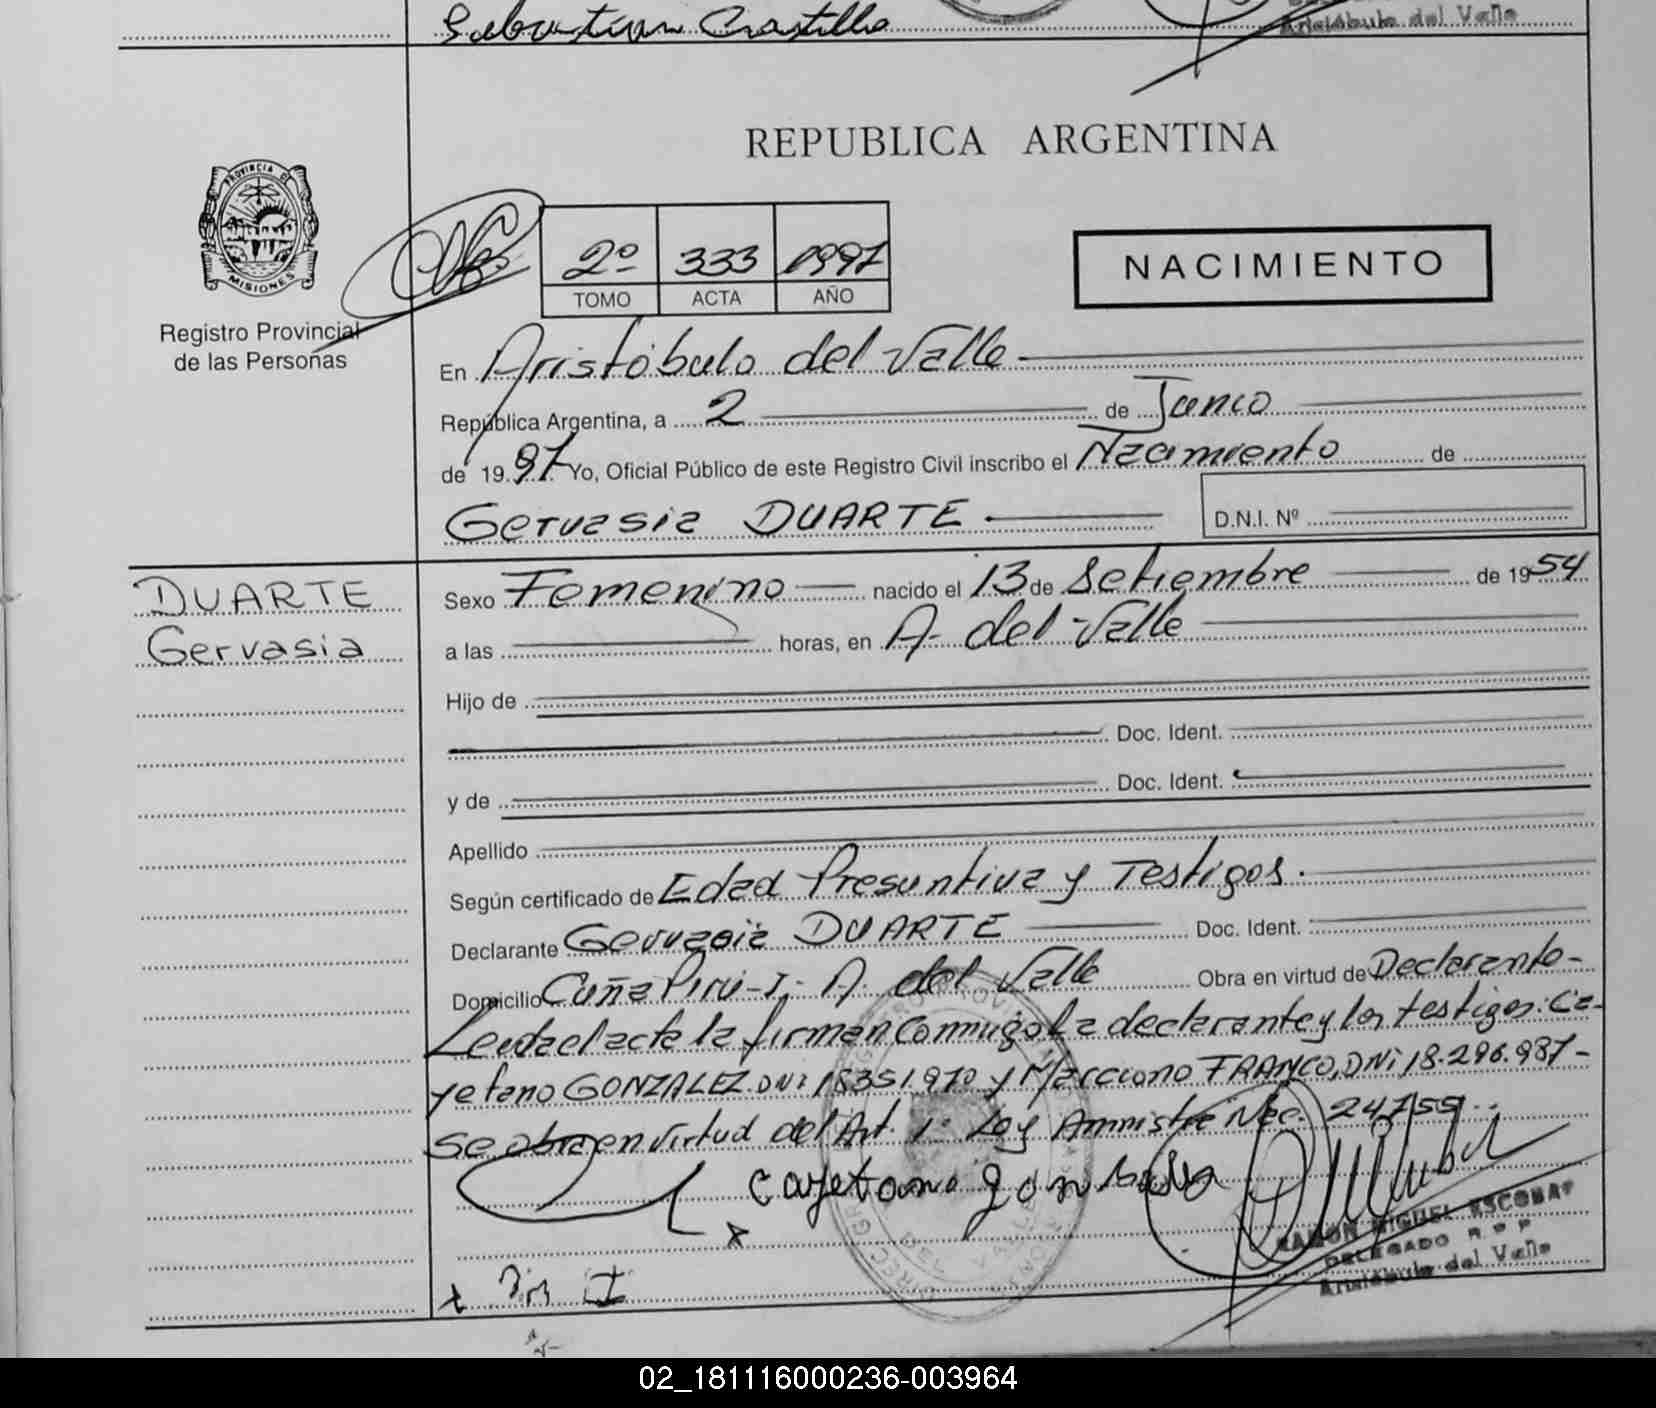 Sebastian Castillo
Aristóbulo del Valle
REPUBLICA ARGENTINA
PROVINCIA DE
MISIONES
Registro Provincial
de las Personas
2º 333 1997
TOMO ACTA AÑO
NACIMIENTO
En Aristóbulo del Valle
República Argentina, a 2 de Junio
de 1997 Yo, Oficial Público de este Registro Civil inscribo el Nacimiento de
Gervasia DUARTE D.N.I. Nº
DUARTE
Gervasia
Sexo Femenino nacido el 13 de Setiembre de 1954
a las horas, en A. del Valle
Hijo de
Doc. Ident.
y de Doc. Ident.
Apellido
Según certificado de Edad Presuntiva y Testigos.
Declarante Gervasia DUARTE Doc. Ident.
Domicilio Cuña Pirú-I- A. del Valle Obra en virtud de Declarante-
Leida el acta la firman conmigo La declarante y los testigos: Ca-
yetano GONZALEZ DNI 18351.970 y Marciano FRANCO, DNI 18.296.987-
Se obra en virtud del Art. 1º Ley Amnistia Nac. 24755.
Cayetano
RAMON MIGUEL ESCOBAR
DELEGADO R.P.P
Aristóbulo del Valle
02_181116000236-003964